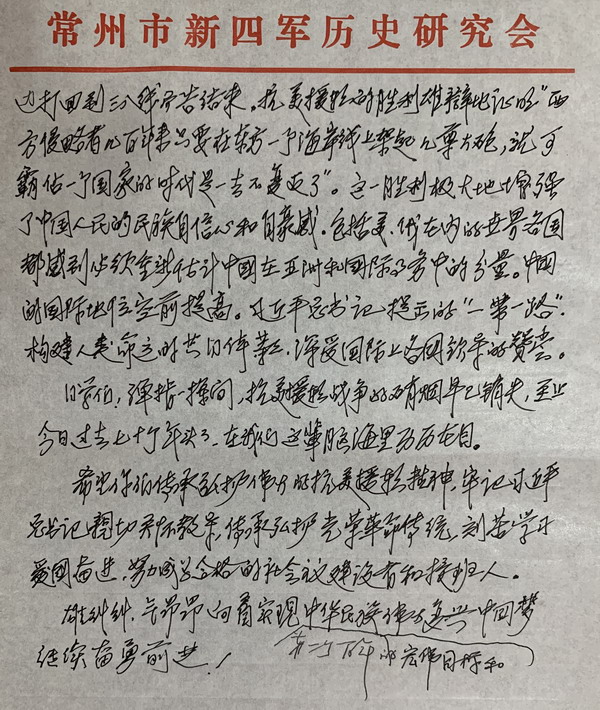 常州市新四军历史研究会
边打回到三八线宣告结束。抗美援朝的胜利雄辩地证明“西
方侵略者几百年来只要在东方一个海岸线上架起几尊大炮，就可
霸占一个国家的时代是一去不复返了”。这一胜利极大地增强
了中国人民的民族自信心和自豪感。包括美、俄在内的世界各国
都感到必须重新估计中国在亚洲和国际事务中的分量。中国
的国际地位空前提高。习近平总书记提出的“一带一路”、
构建人类命运的共同体等，深受国际上各国领导的赞赏。
同学们，弹指一挥间，抗美援朝战争的硝烟早已消失，至止
今日过去七十几年头了，在我们这辈脑海里历历在目。
希望你们传承弘扬伟大的抗美援朝精神，牢记习近平
总书记的切关怀教导，传承弘扬光荣革命传统，刻苦学习
爱国奋进，努力成为合格的社会主义建设者和接班人。
雄纠纠、气昂昂向着实现中华民族伟大复兴中国梦
继续奋勇前进！
第二个百年的宏伟目标和